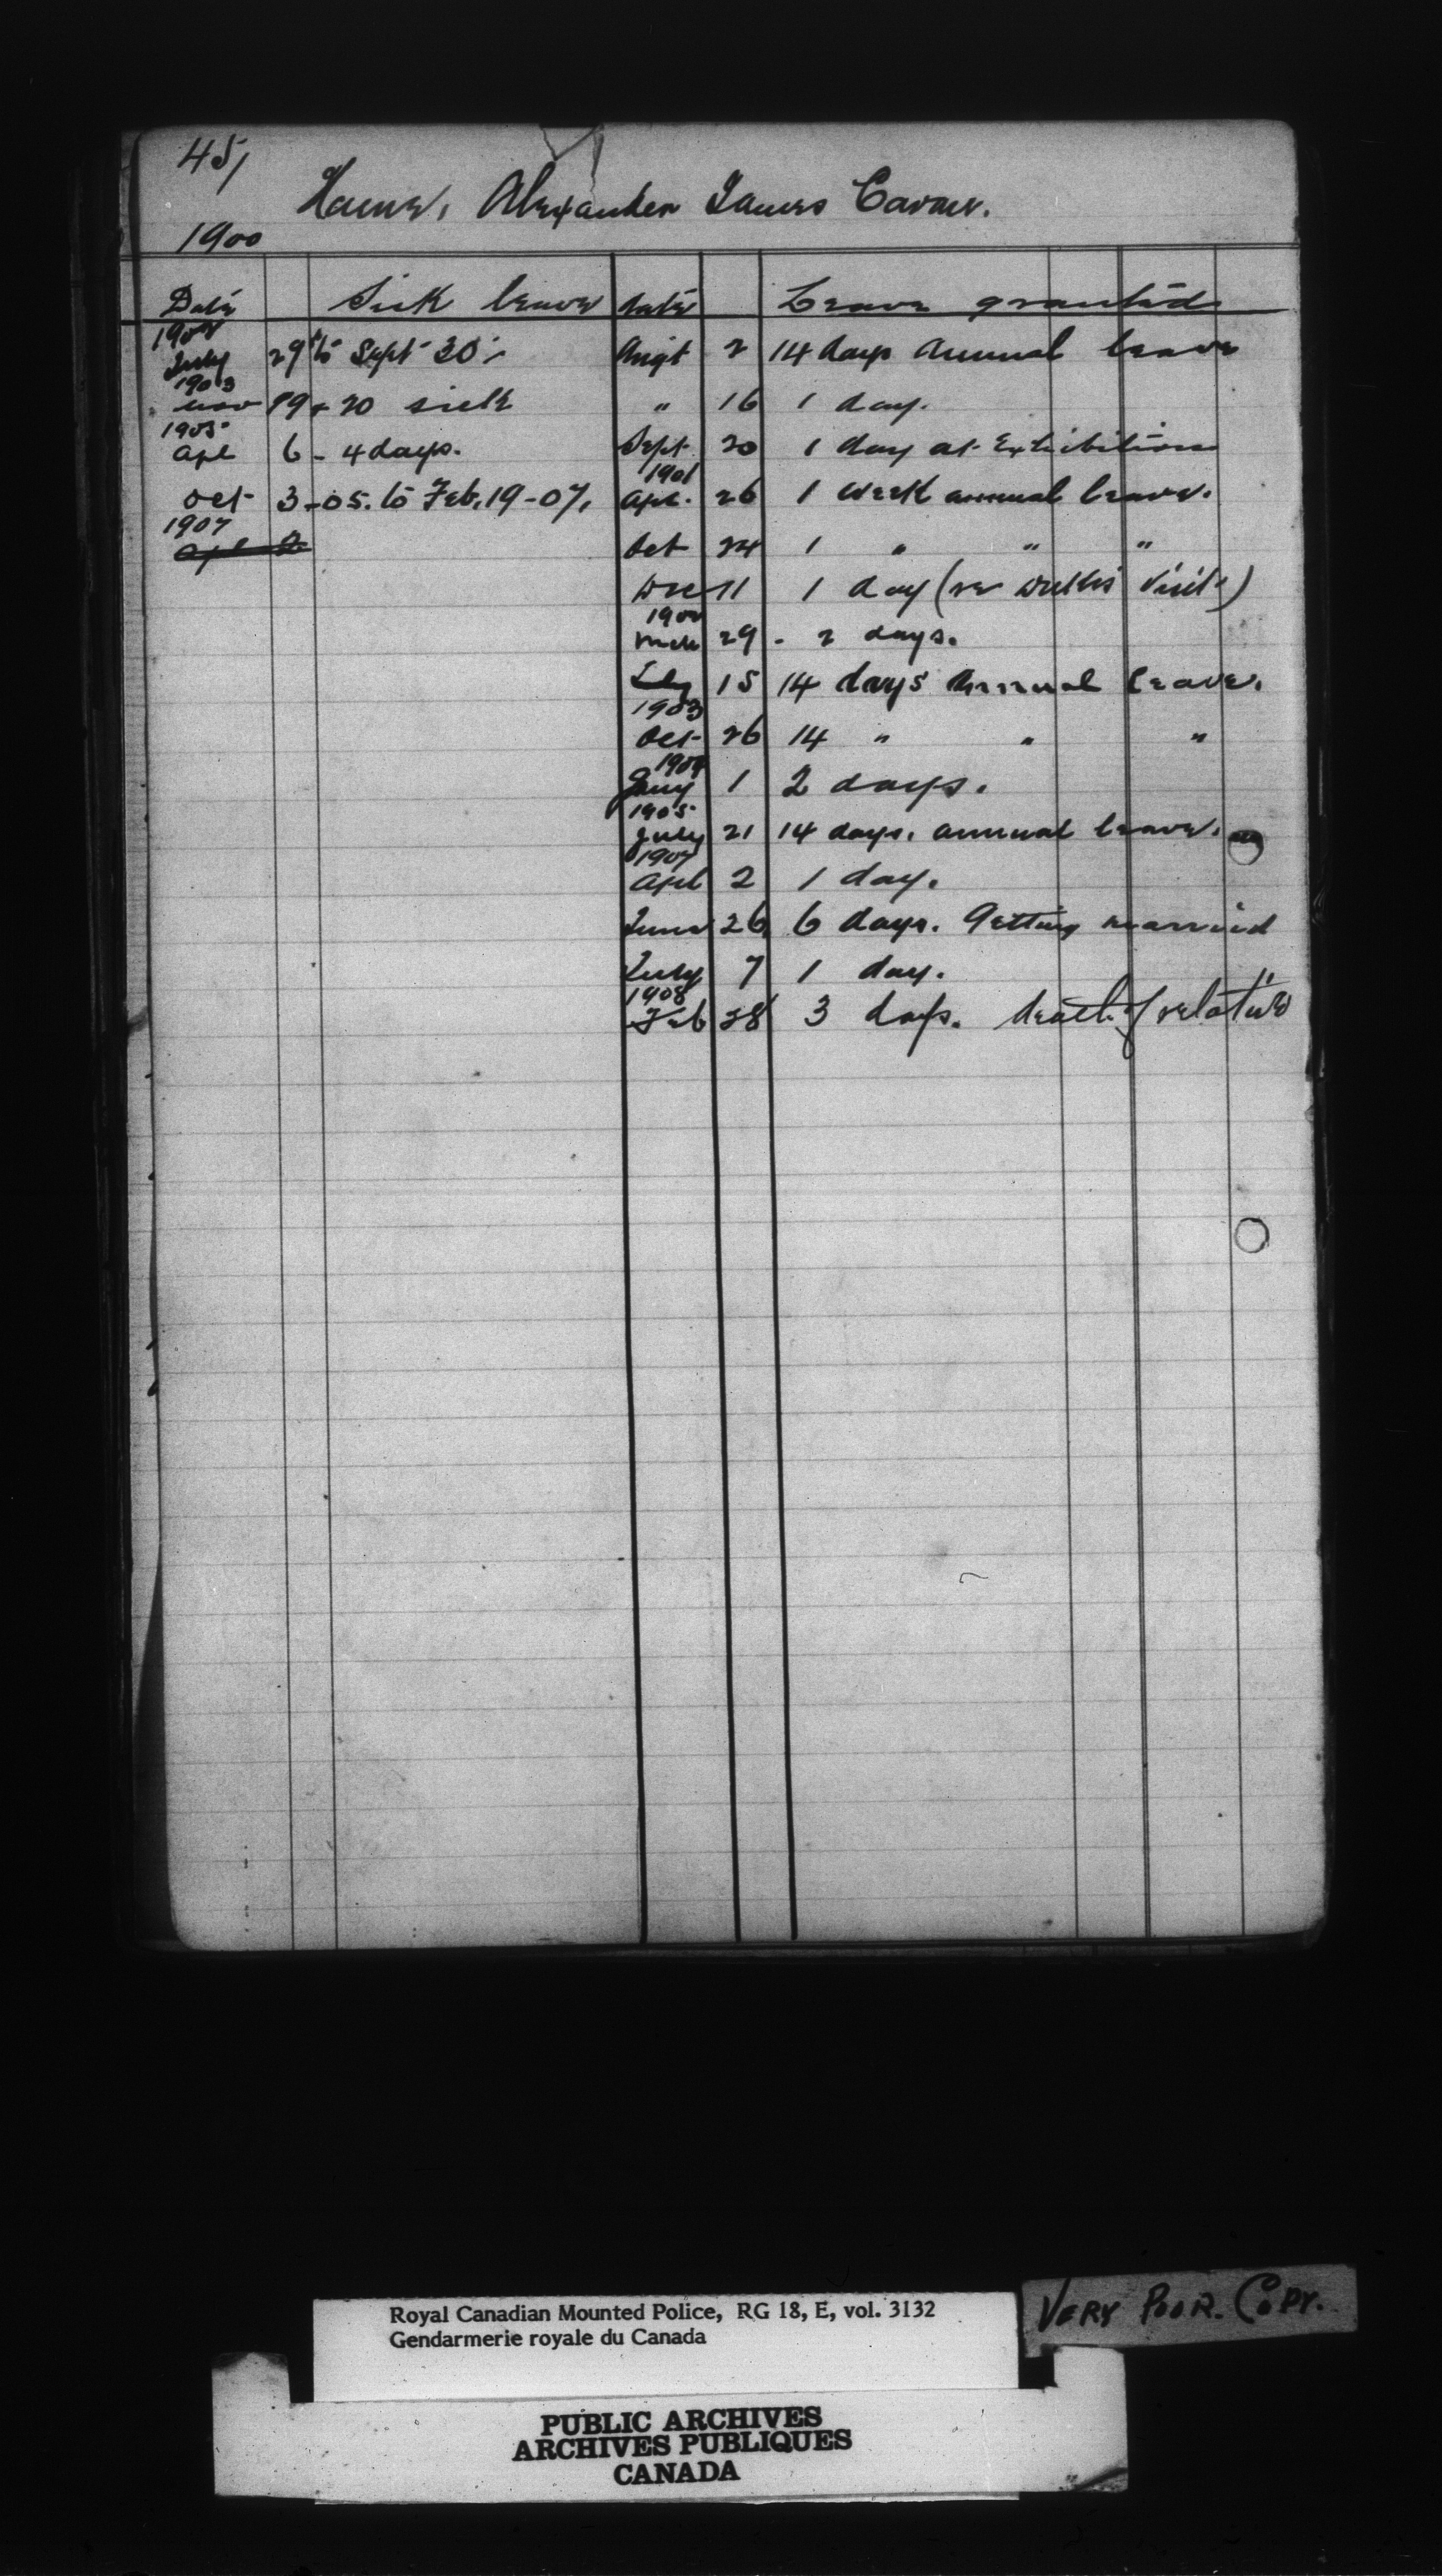 45/
Alexander James
1900
Date Sick leave date Leave granted
July 29th to Sept 30 Augt 2 14 days annual leave
1903
Nov 19 & 20 sick " 16 1 day.
1905
Apl 6 - 4 days. Sept 20 1 day at Exhibition
1901
Oct 3-05. to Feb. 19-07. Apl. 26 1 week annual leave.
1907
Apl 2 Oct 24 1 " " "
Dec 11 1 day (re visit)
Mch 29 - 2 days.
15 14 days Annual leave.
1903
Oct 26 14 " " "
1904
Jany 1 2 days.
1905
July 21 14 days. annual leave.
1907
Apl 2 1 day.
June 26 6 days. Getting married
July 7 1 day.
1908
Feb 28 3 days. death of relative
Royal Canadian Mounted Police, RG 18, E, vol. 3132
Gendarmerie royale du Canada
VERY POOR. COPY.
PUBLIC ARCHIVES
ARCHIVES PUBLIQUES
CANADA